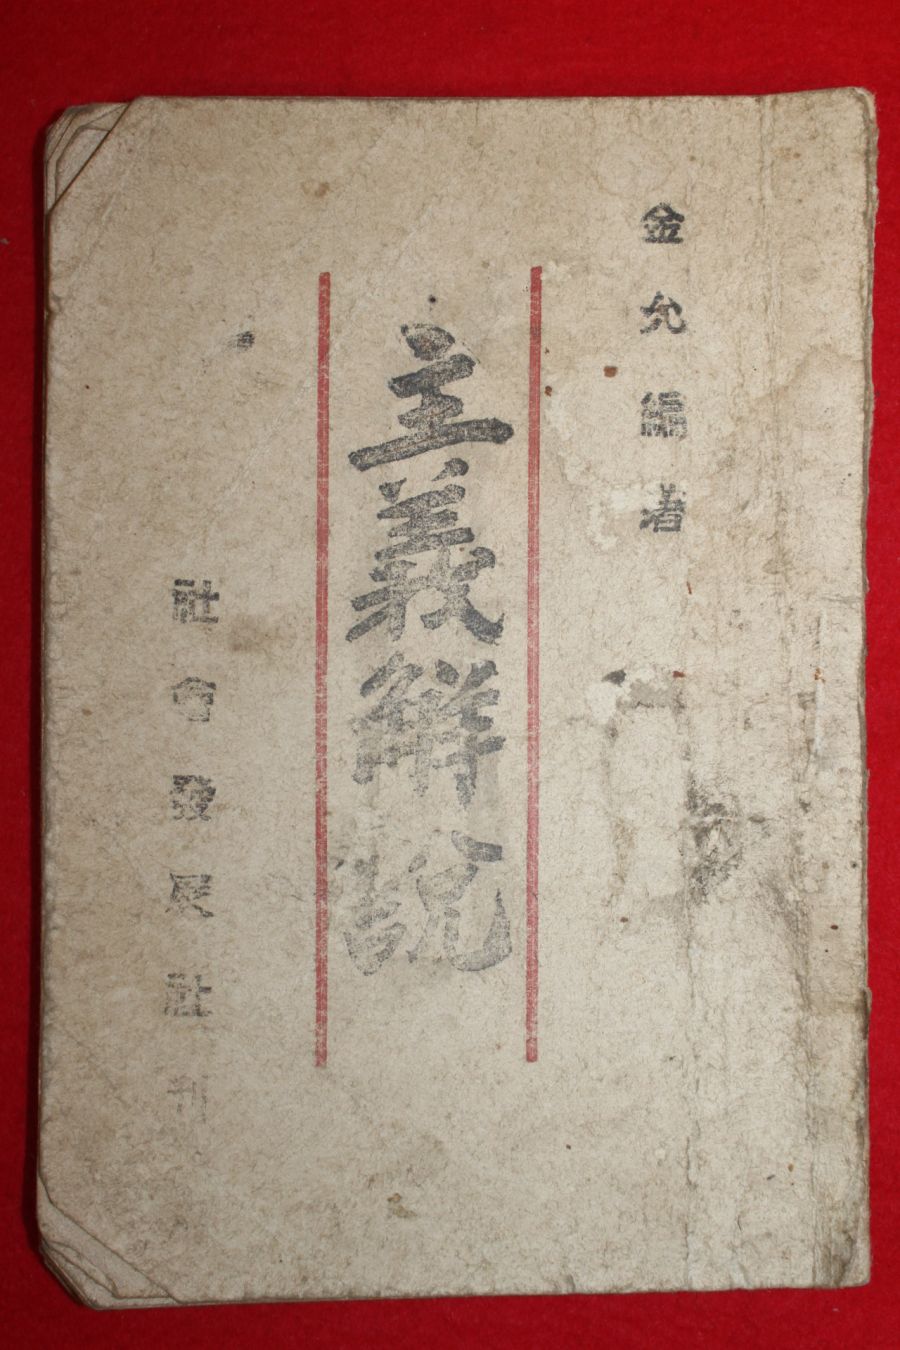 金允編著
主義解説
社會發展社刊